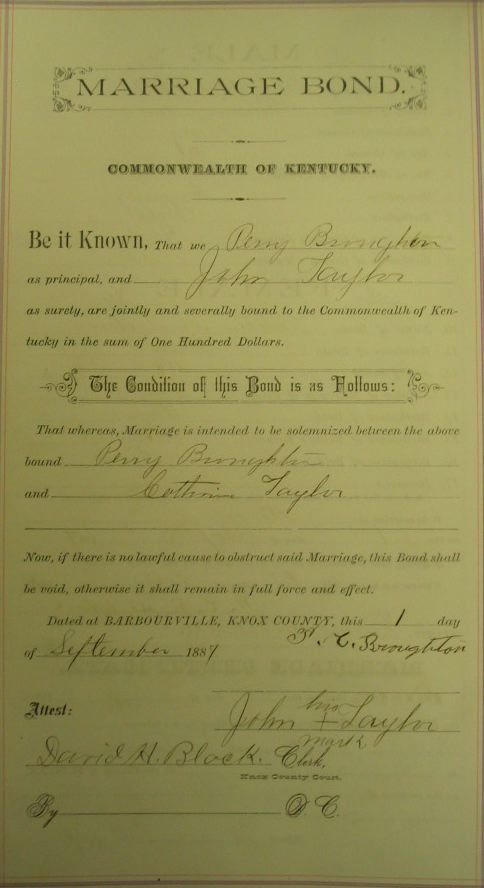 MARRIAGE BOND.
COMMONWEALTH OF KENTUCKY.
Be it Known, That we Perry Broughton
as principal, and John Taylor
as surety, are jointly and severally bound to the Commonwealth of Ken-
tucky in the sum of One Hundred Dollars.
The Condition of this Bond is as Follows:
That whereas, Marriage is intended to be solemnized between the above
bound Perry Broughton
and Taylor
Now, if there is no lawful cause to obstruct said Marriage, this Bond shall
be void, otherwise it shall remain in full force and effect.
Dated at BARBOURVILLE, KNOX COUNTY, this 1 day
of September 1887 Broughton
Attest: his
John + Taylor
mark
David H. Black. Clerk,
Knox County Court.
By D. C.